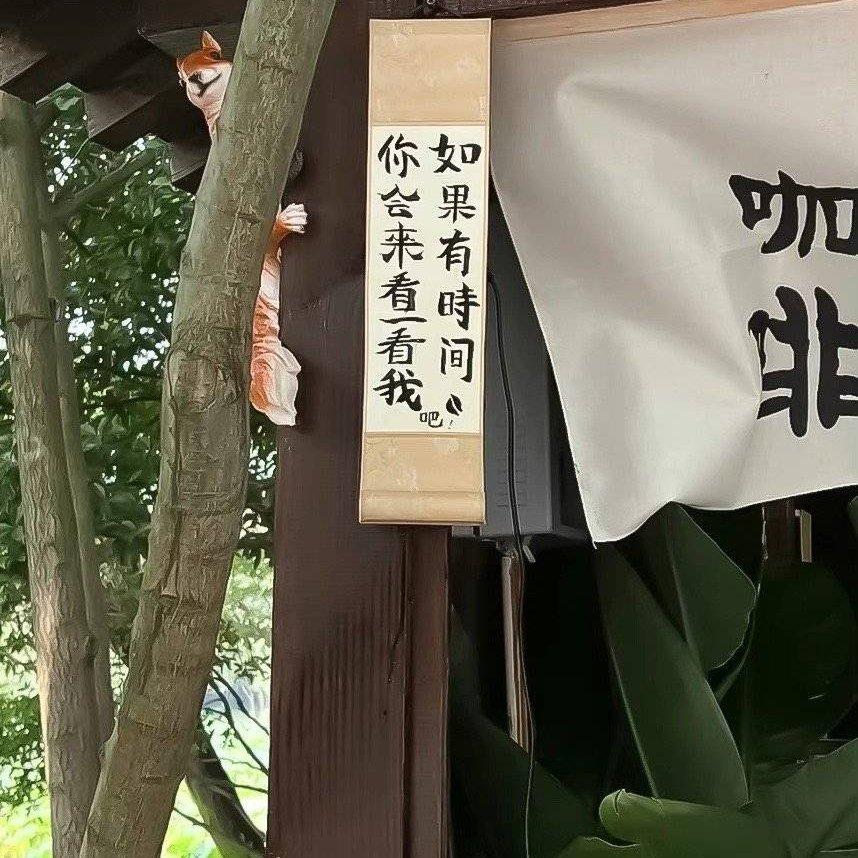 如果有時间
你会来看一看我
吧！
咖啡